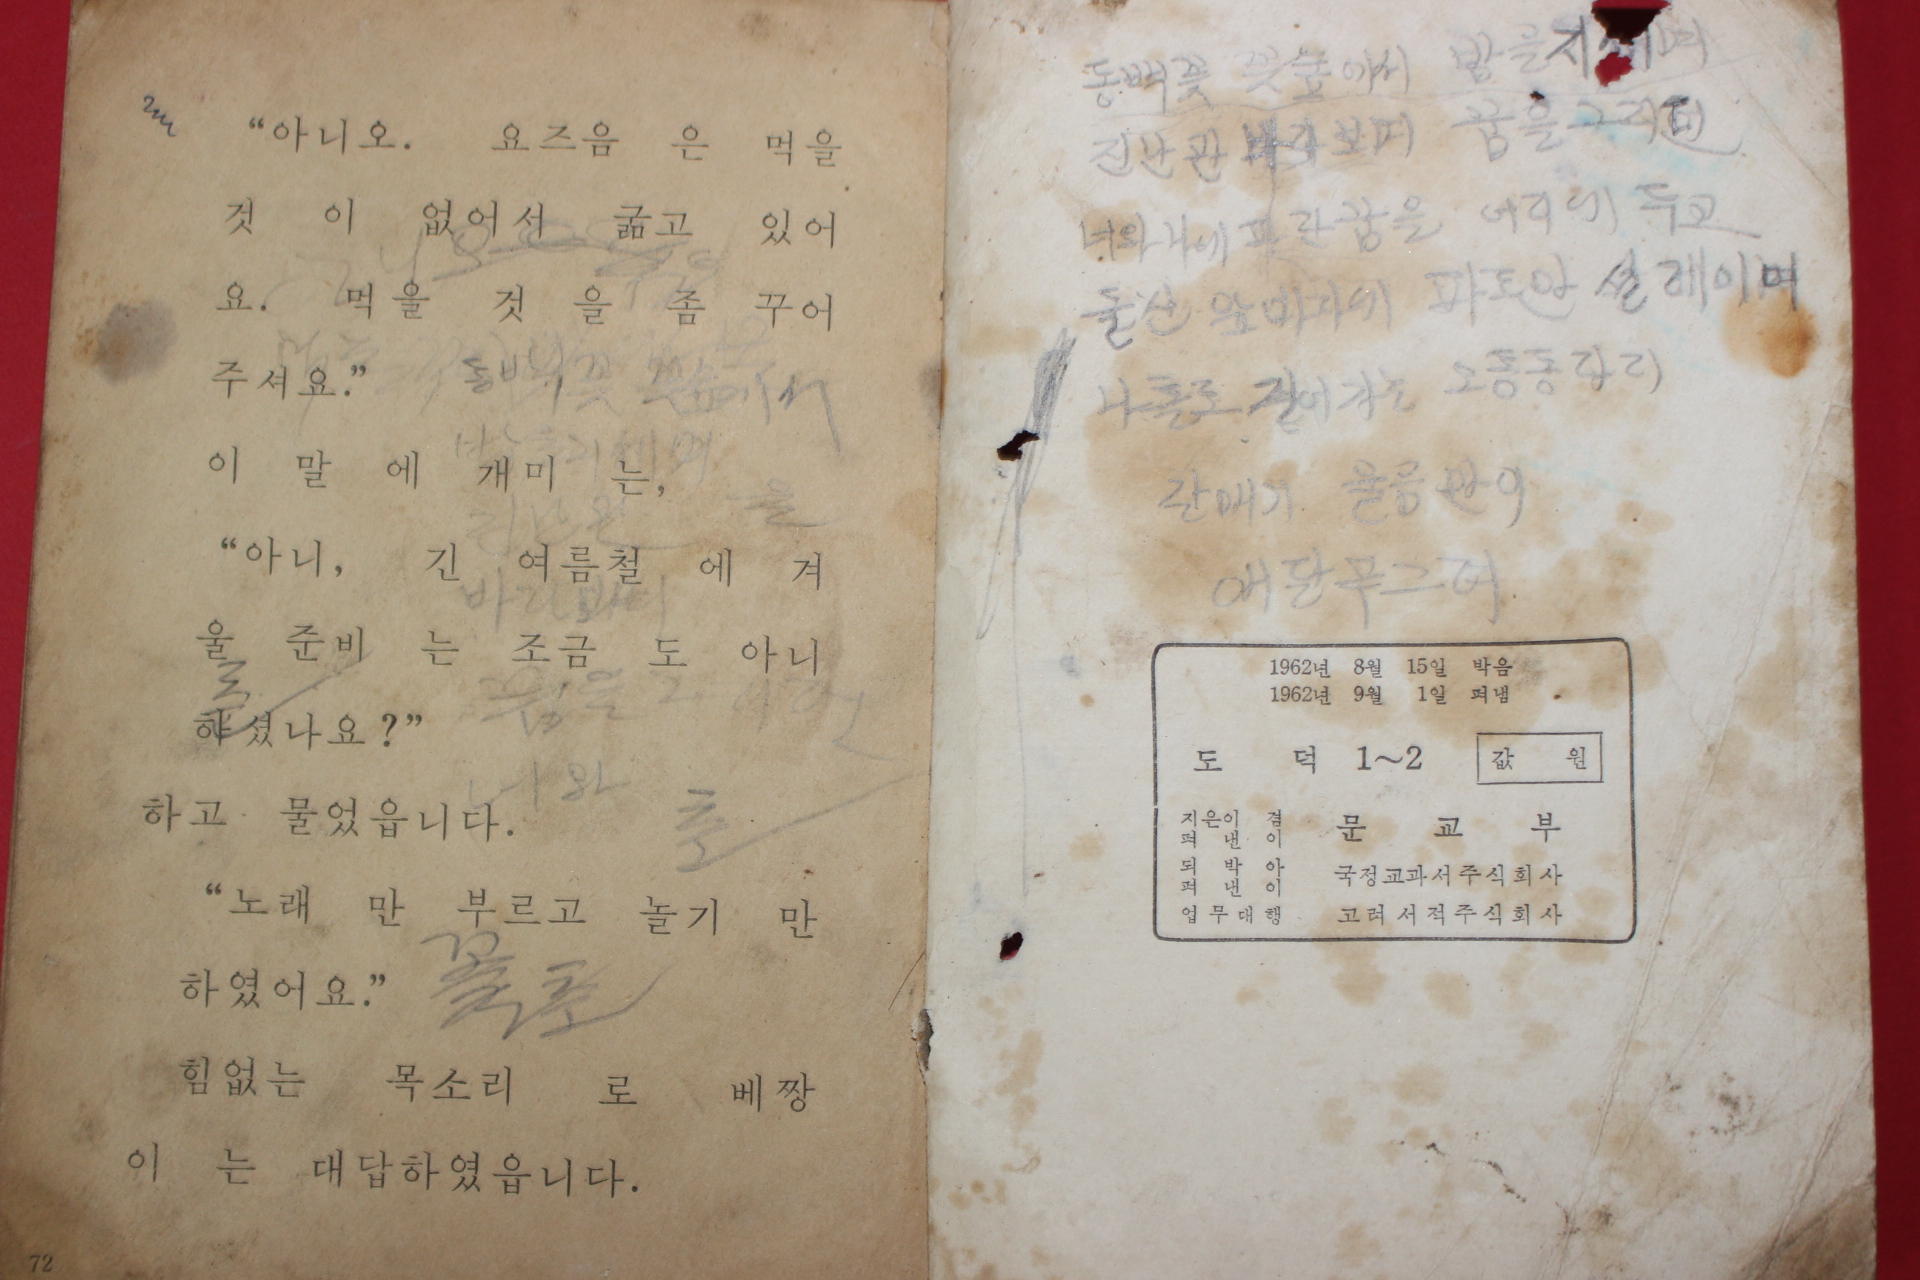 “아니오. 요즈음 은 먹을
것 이 없어서 굶고 있어
요. 먹을 것 을 좀 꾸어
주셔요.”
동백꽃 꽃숲에서
이 말 에 개미 는,
“아니, 긴 여름철 에 겨
울 준비 는 조금 도 아니
하셨나요?”
너와
하고 물었읍니다.
“노래 만 부르고 놀기 만
하였어요.”
힘없는 목소리 로 베짱
이 는 대답하였읍니다.
72
동백꽃 꽃숲에서 밤을
진난관 바라보며 꿈을
너와 나에 파란꿈을 머리에 두고
돌산 앞바다에 파도만 설레이며
갈매기 울음만이
1962년 8월 15일 박음
1962년 9월 1일 펴냄
도 덕 1~2 값 원
지은이 겸
펴 낸 이 문 교 부
되 박 아
펴 낸 이 국정교과서주식회사
업무대행 고려서적주식회사